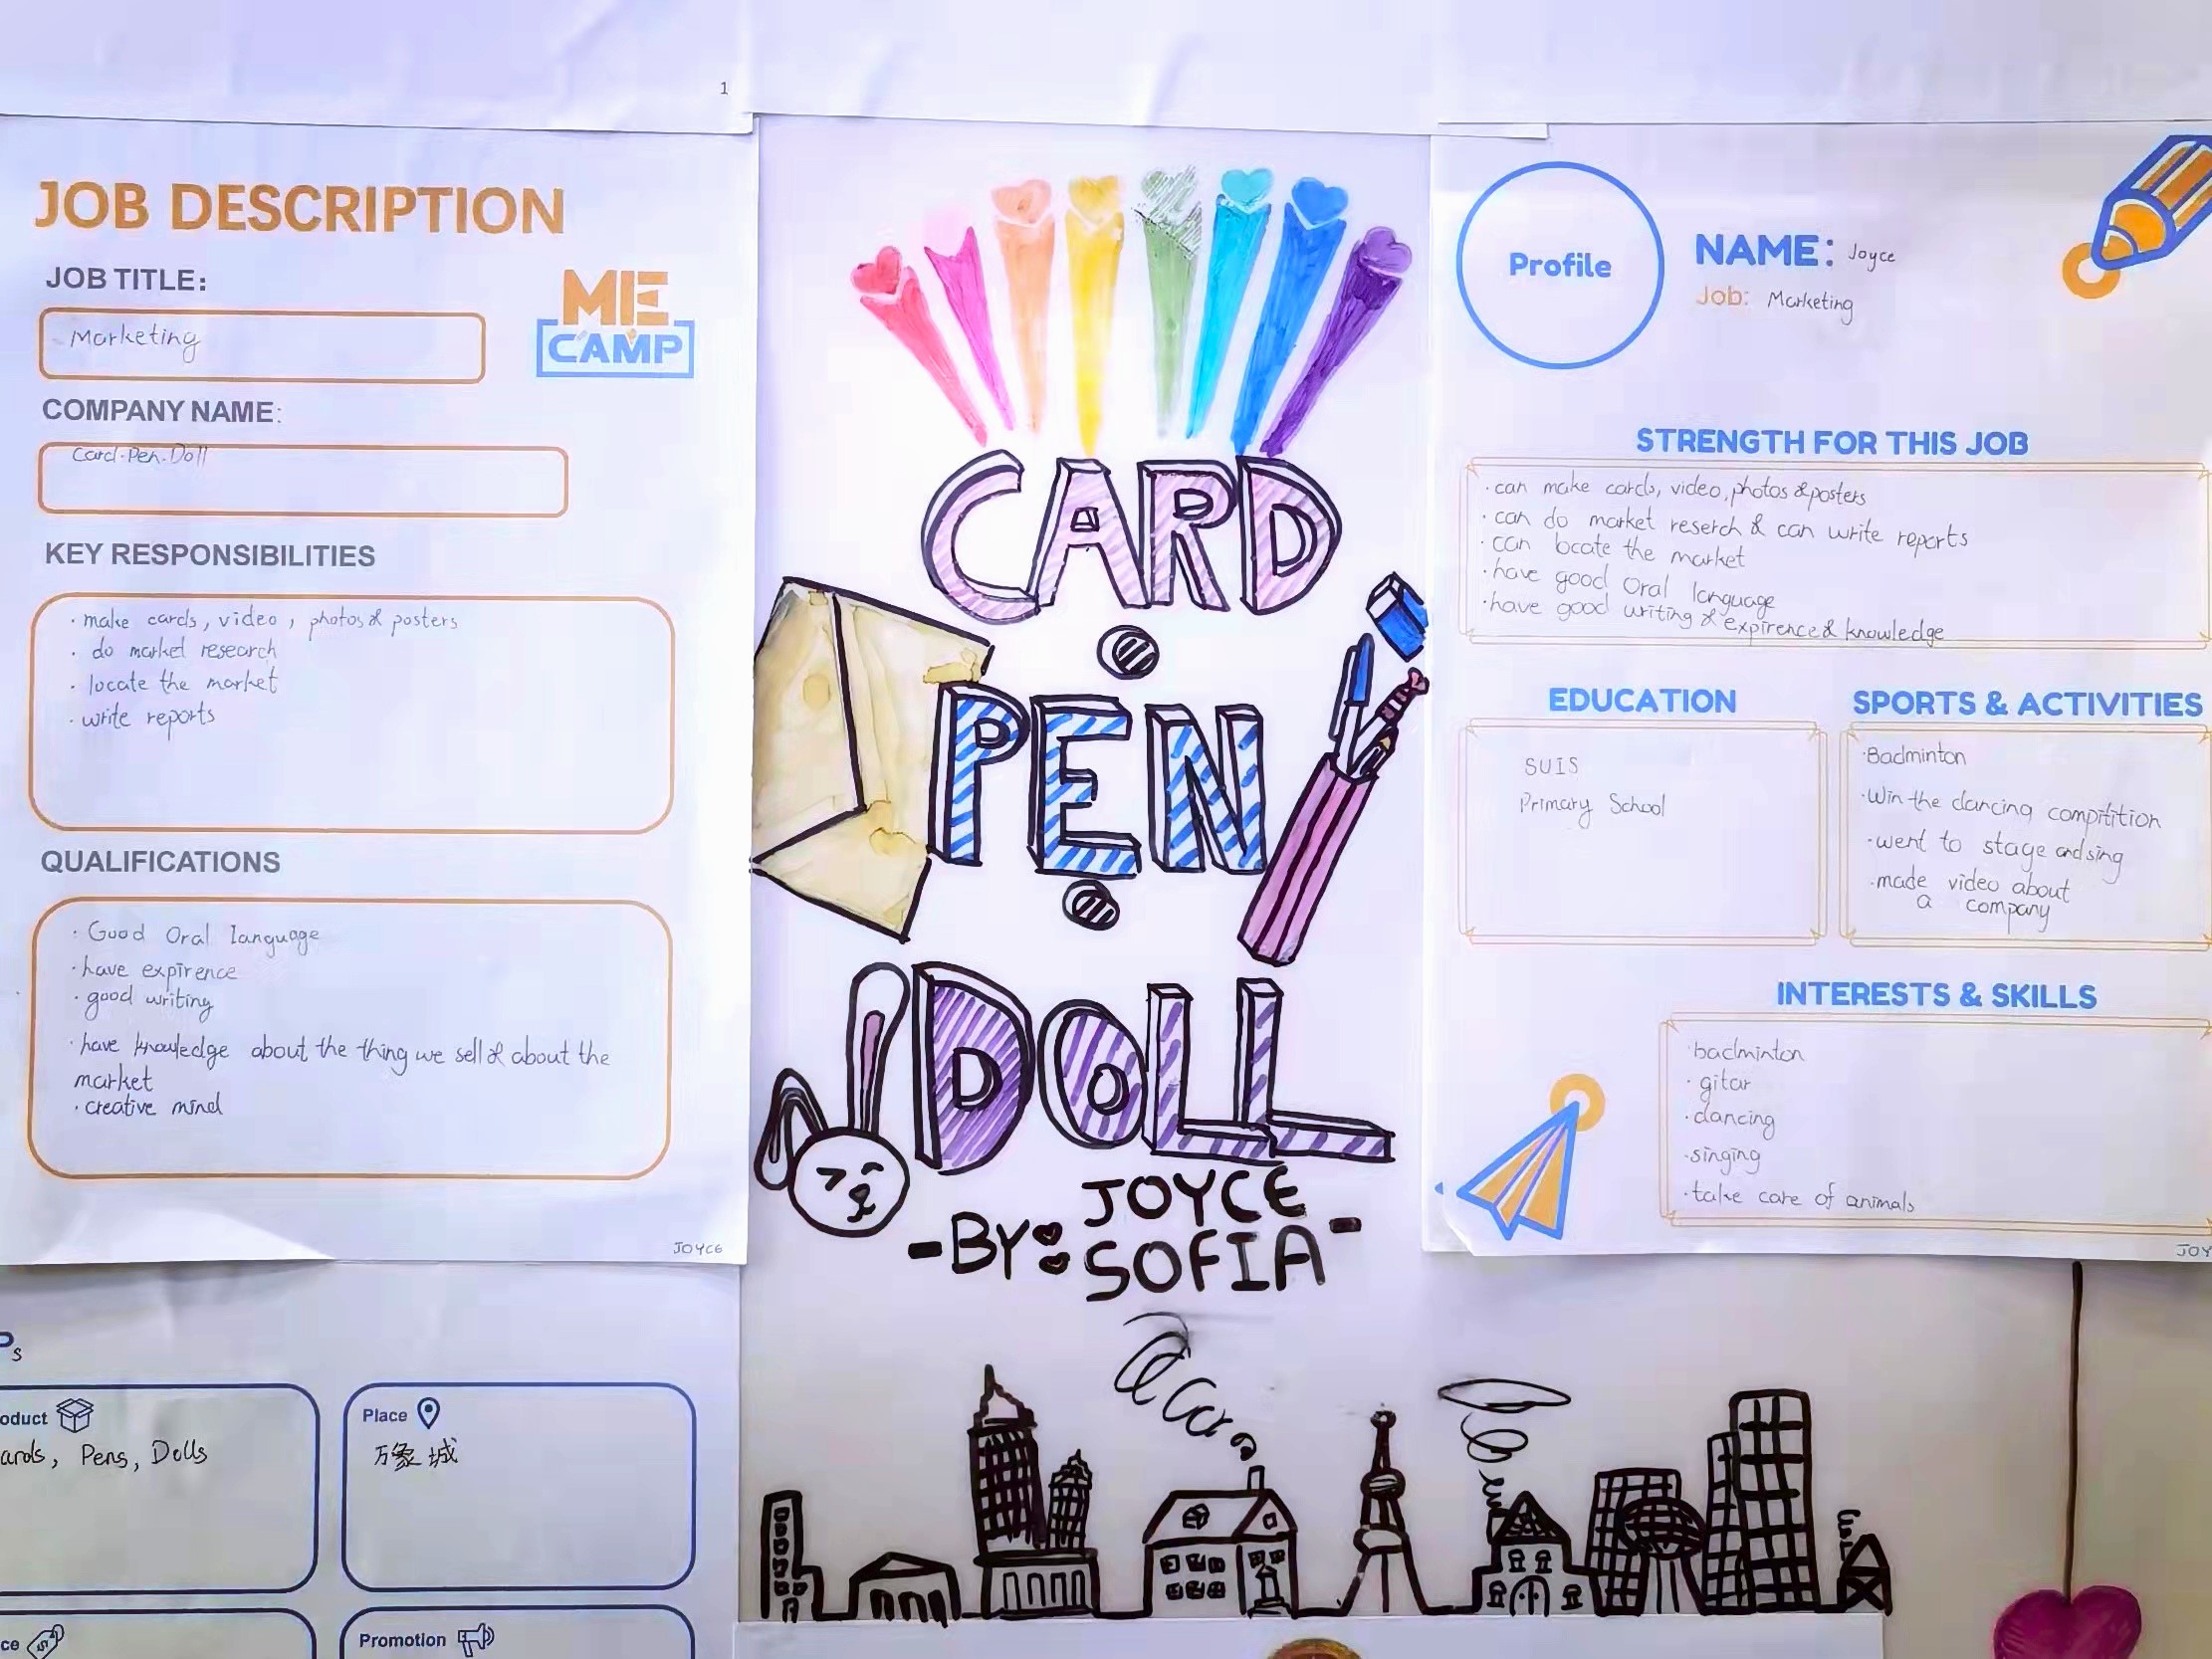 1
JOB DESCRIPTION
JOB TITLE:
Marketing
ME
CAMP
COMPANY NAME:
Card·Pen·Doll
KEY RESPONSIBILITIES
· make cards, video, photos & posters
· do market research
· locate the market
· write reports
QUALIFICATIONS
· Good Oral language
· have expirence
· good writing
· have knowledge about the thing we sell & about the
market
· creative mind
JOYCE
Ps
oduct
ards, Pens, Dolls
Place
万象城
ce
Promotion
CARD
PEN
DOLL
-BY: JOYCE
SOFIA-
Profile
NAME: Joyce
Job: Marketing
STRENGTH FOR THIS JOB
· can make cards, video, photos & posters
· can do market reserch & can write reports
· can locate the market
· have good Oral language
· have good writing & expirence & knowledge
EDUCATION
SUIS
Primary School
SPORTS & ACTIVITIES
· Badminton
· Win the dancing compitition
· went to stage and sing
· made video about
a company
INTERESTS & SKILLS
· badminton
· gitar
· dancing
· singing
· take care of animals
JOY